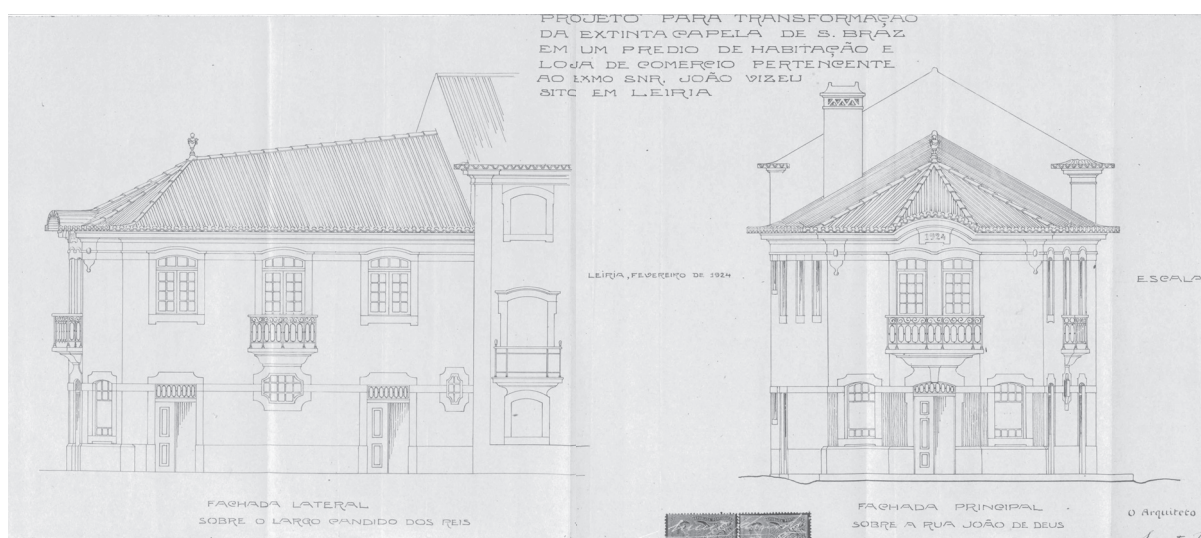 PROJETO PARA TRANSFORMAÇAO
DA EXTINTA CAPELA DE S. BRAZ
EM UM PREDIO DE HABITAÇÃO E
LOJA DE COMERCIO PERTENCENTE
AO EXMO SNR. JOÃO VIZEU
SITO EM LEIRIA
1924
LEIRIA, FEVEREIRO DE 1924
ESCALA
FACHADA LATERAL
SOBRE O LARGO CANDIDO DOS REIS
FACHADA PRINCIPAL
SOBRE A RUA JOÃO DE DEUS
O Arquiteto